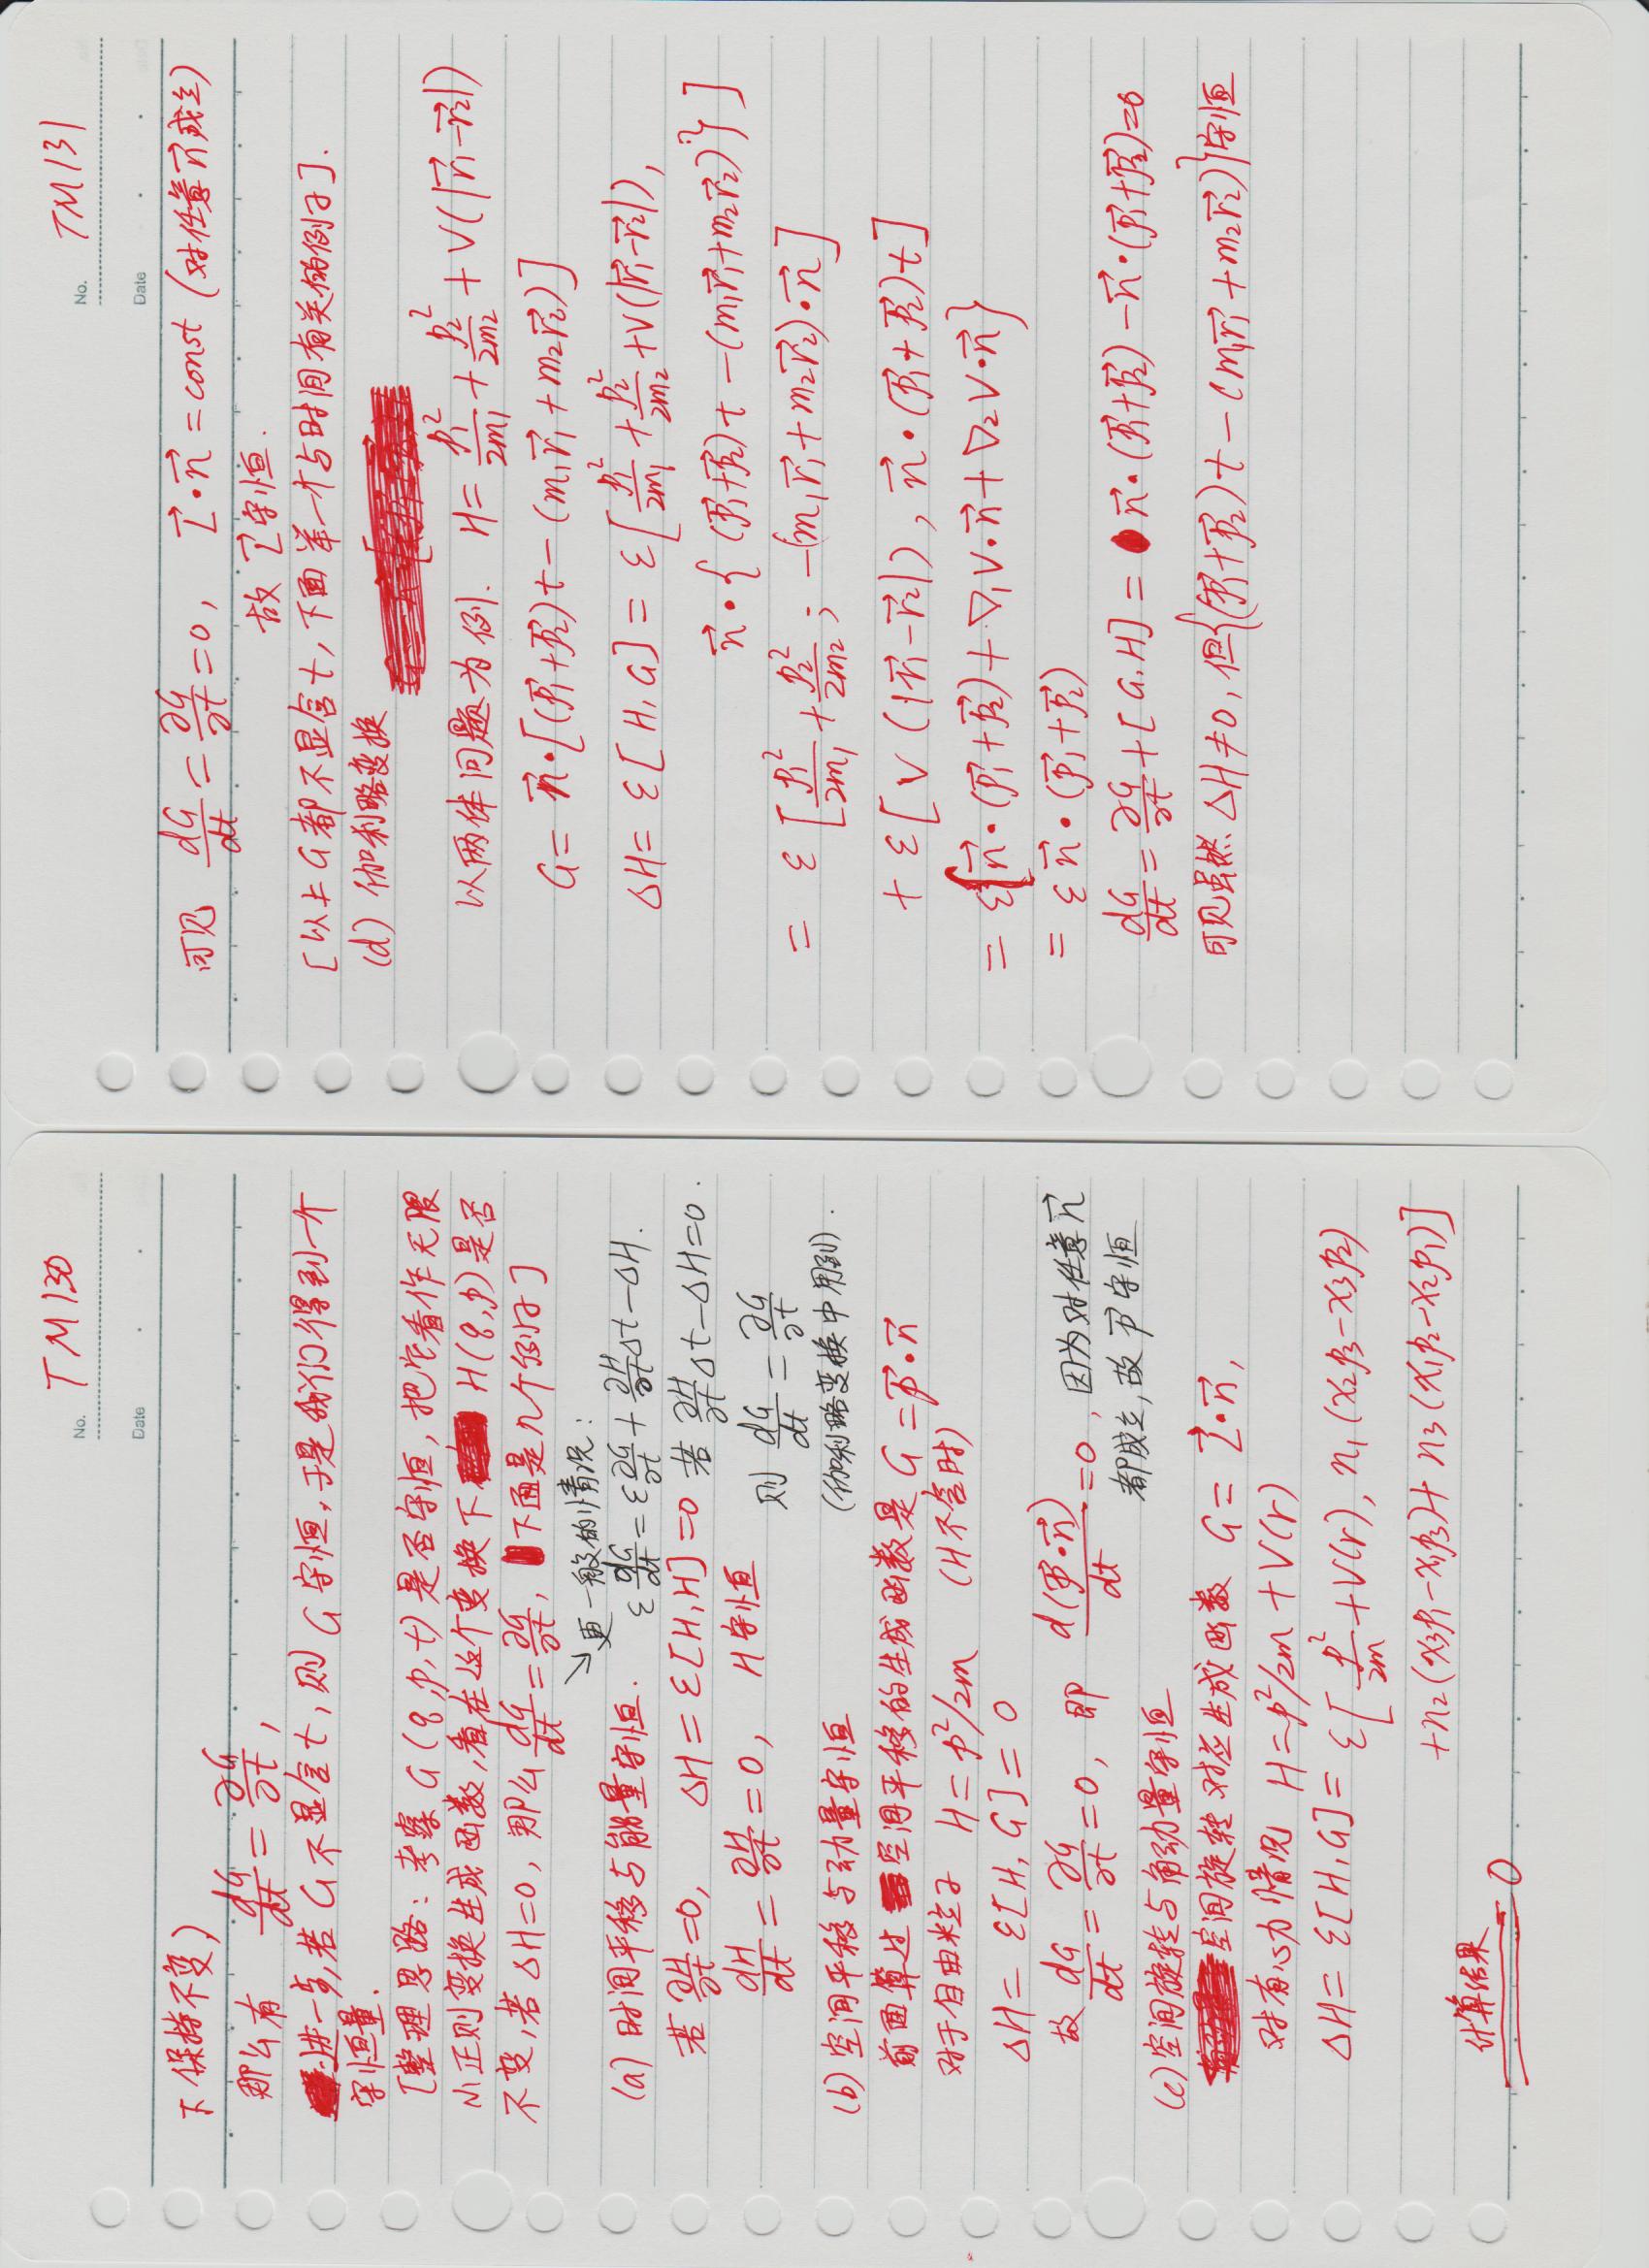 No. TM130
Date
下保持不变)
那么有 dG/dt = ∂G/∂t,
进一步,若G不显含t,则G守恒,于是我们得到一个
守恒量.
[整理思路:考察G(q,p,t)是否守恒,把它看作无限
小正则变换生成函数,看在这个变换下 H(q,p)是否
不变,若ΔH=0,那么 dG/dt = ∂G/∂t, 下面是几个例子]
↘更一般的情况:
(a) 时间平移与能量守恒. ε dG/dt = ε ∂G/∂t + ∂H/∂t Δt − ΔH.
若 ∂H/∂t = 0, ΔH = ε[H,H] = 0 若 ∂H/∂t Δt − ΔH = 0.
dH/dt = ∂H/∂t = 0, H守恒
则 dG/dt = ∂G/∂t
(伽利略变换中用到).
(b) 空间平移与动量守恒
前面算过空间平移的生成函数是 G = p⃗·n⃗
对于自由粒子 H = p²/2m (H不含时)
ΔH = ε[H, G] = 0
故 dG/dt = ∂G/∂t = 0, 即 d(p⃗·n⃗)/dt = 0, 因为对任意n⃗
都成立,故p⃗守恒
(c) 空间旋转与角动量守恒
空间旋转对应生成函数 G = L⃗·n⃗,
对有心力情况 H = p²/2m + V(r)
ΔH = ε[H,G] = ε[p²/2m + V(r), n₁(x₂p₃−x₃p₂)
+n₂(x₃p₁−x₁p₃)+n₃(x₁p₂−x₂p₁)]
计算结果 0
No. TM131
Date
可见 dG/dt = ∂G/∂t = 0, L⃗·n⃗ = const (对任意n⃗成立)
故L⃗守恒.
[以上G都不显含t,下面举一个与时间有关的例子].
(d) 伽利略变换
以两体问题为例. H = p₁²/2m₁ + p₂²/2m₂ + V(|r⃗₁−r⃗₂|)
G = n⃗·[(p⃗₁+p⃗₂)t − (m₁r⃗₁+m₂r⃗₂)]
ΔH = ε[H,G] = ε[p₁²/2m₁ + p₂²/2m₂ + V(|r⃗₁−r⃗₂|),
n⃗·{(p⃗₁+p⃗₂)t −(m₁r⃗₁+m₂r⃗₂)}]
= ε[p₁²/2m₁ + p₂²/2m₂ ; −(m₁r⃗₁+m₂r⃗₂)·n⃗]
+ ε[V(|r⃗₁−r⃗₂|), n⃗·(p⃗₁+p⃗₂)t]
= ε{n⃗·(p⃗₁+p⃗₂)+∇₁V·n⃗+∇₂V·n⃗}
= εn⃗·(p⃗₁+p⃗₂)
dG/dt = ∂G/∂t + [G,H] = n⃗·(p⃗₁+p⃗₂) − n⃗·(p⃗₁+p⃗₂)=0
可见虽然ΔH≠0,但{(p⃗₁+p⃗₂)t −(m₁r⃗₁+m₂r⃗₂)}守恒